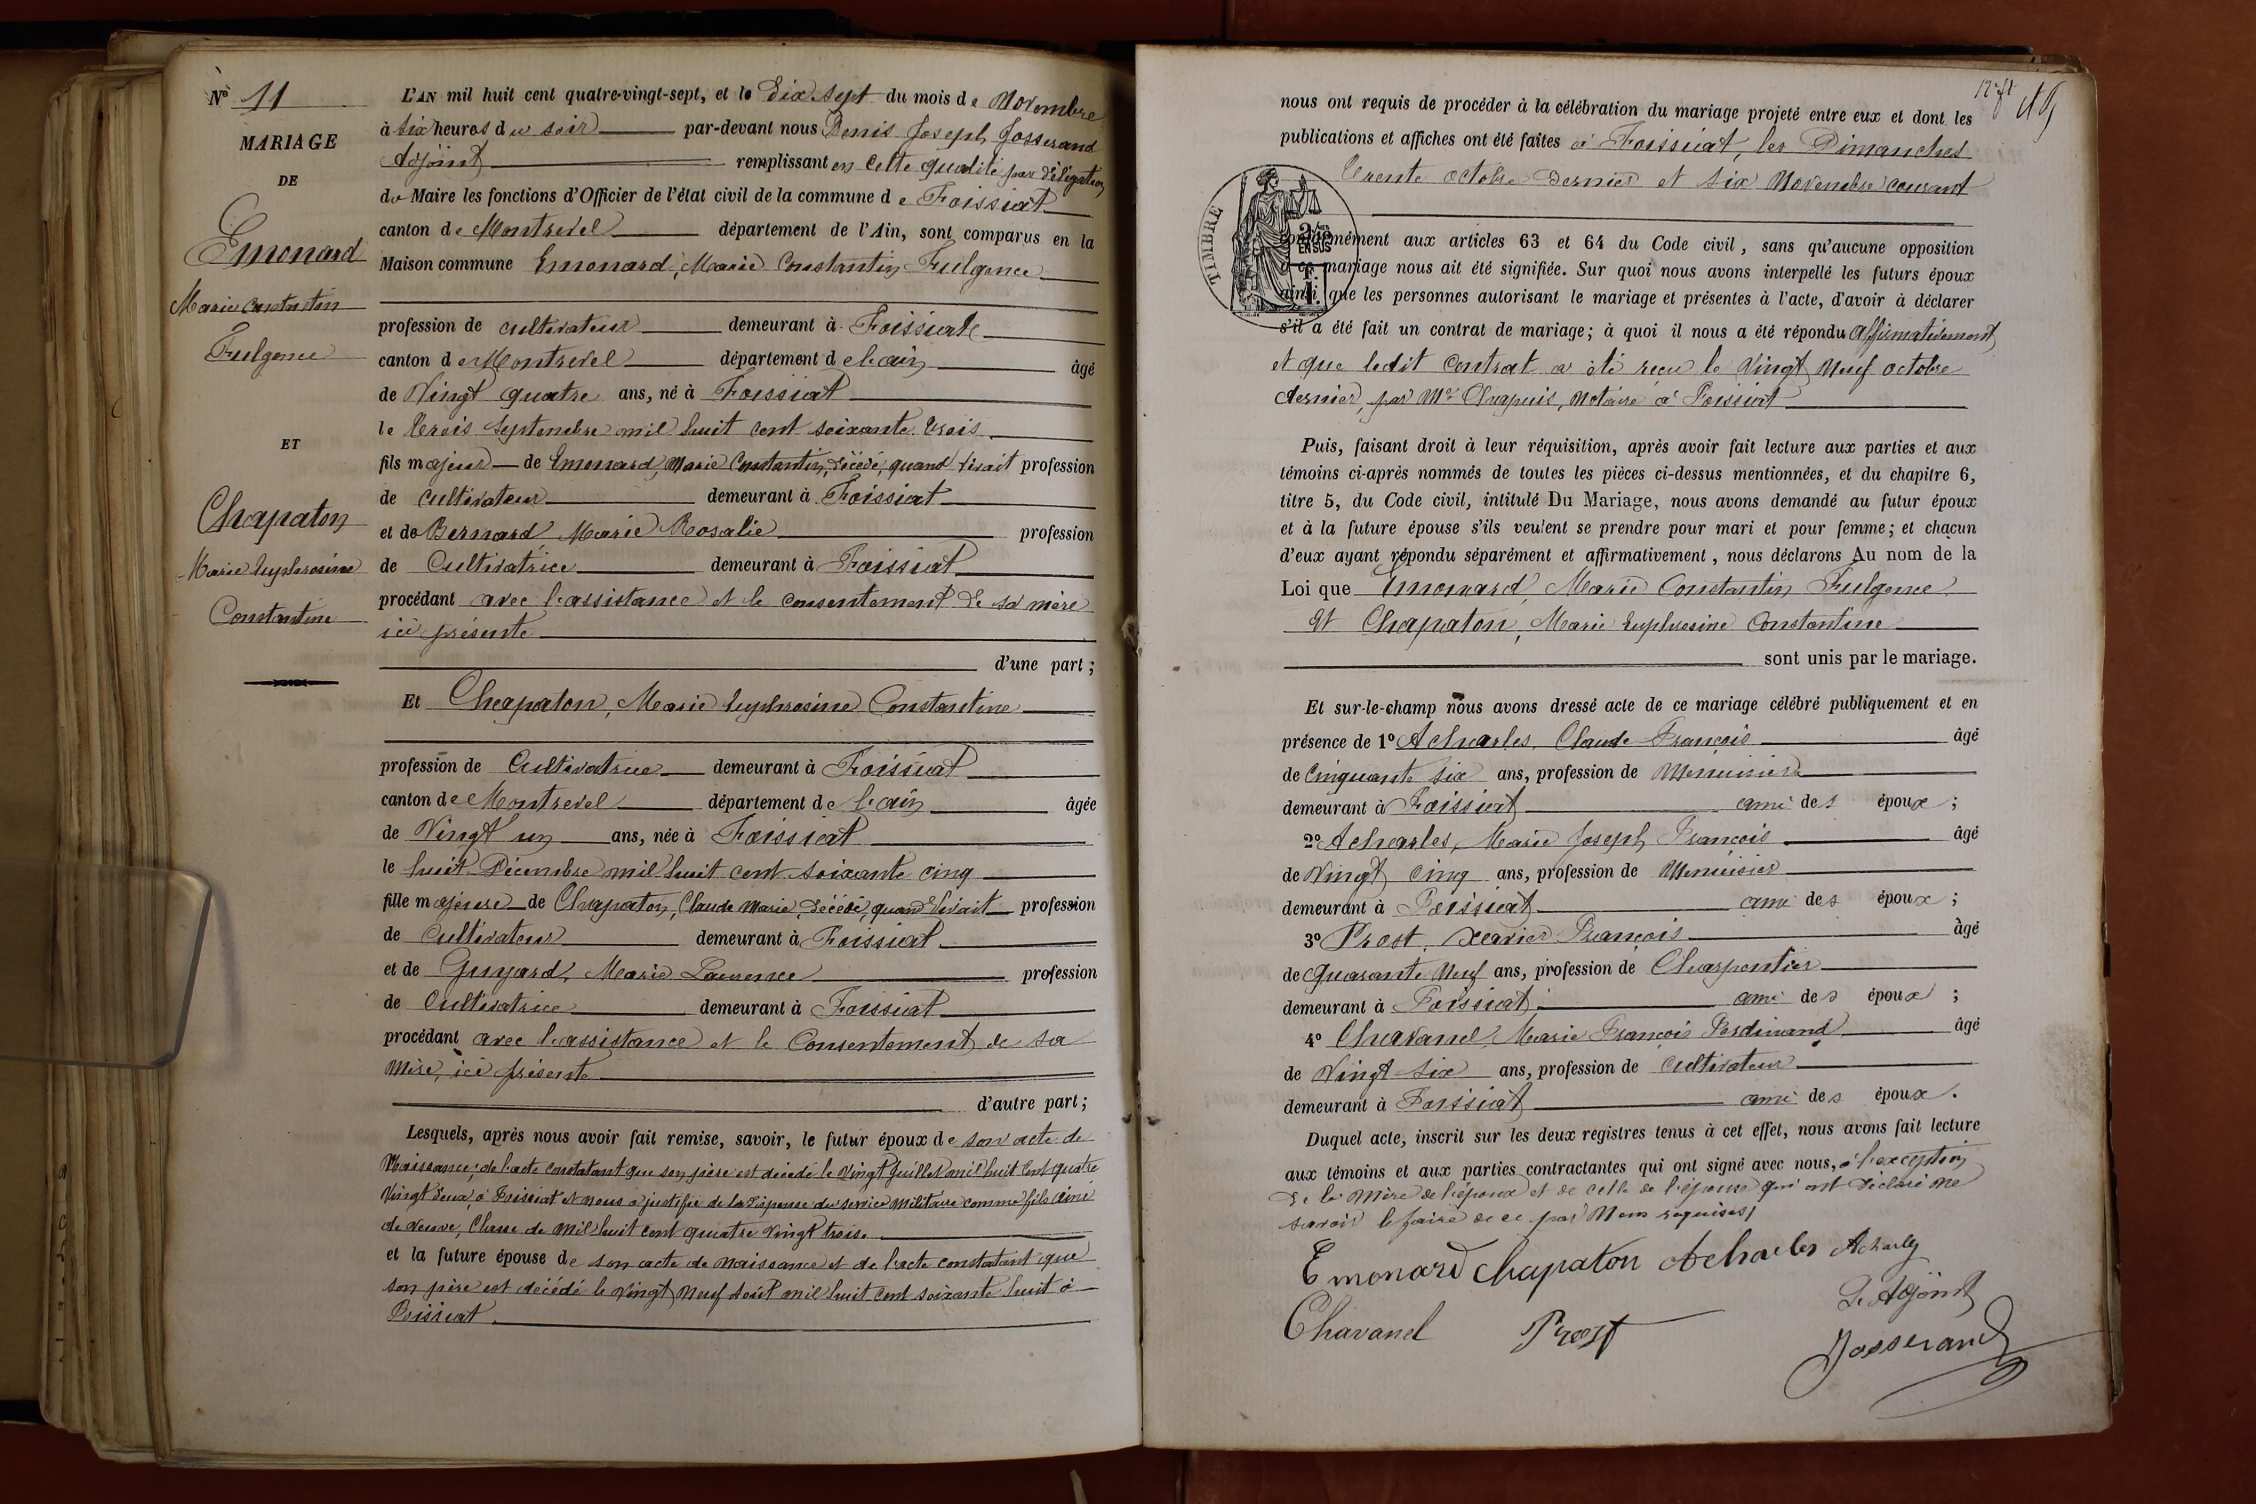 No 11
MARIAGE
DE
Emonard
Marie Constantin
Fulgence
ET
Chapaton
Marie Euphrosine
Constantine
L'AN mil huit cent quatre-vingt-sept, et le Dix Sept du mois de Novembre
à six heures du soir par-devant nous Denis Joseph Josserand
Adjoint remplissant en cette qualité par délégation
du Maire les fonctions d'Officier de l'état civil de la commune de Foissiat
canton de Montrevel département de l'Ain, sont comparus en la
Maison commune Emonard, Marie Constantin Fulgence
profession de cultivateur demeurant à Foissiat
canton de Montrevel département de l'ain âgé
de Vingt quatre ans, né à Foissiat
le trois Septembre mil huit cent soixante trois
fils majeur de Emonard, Marie Constantin, décédé, quand vivait profession
de cultivateur demeurant à Foissiat
et de Bernard Marie Rosalie profession
de Cultivatrice demeurant à Foissiat
procédant avec l'assistance et le consentement de sa mère
ici présente
d'une part;
Et Chapaton, Marie Euphrosine Constantine
profession de Cultivatrice demeurant à Foissiat
canton de Montrevel département de l'ain âgée
de Vingt un ans, née à Foissiat
le huit Décembre mil huit cent soixante cinq
fille majeure de Chapaton, Claude Marie, décédé, quand vivait profession
de Cultivateur demeurant à Foissiat
et de Guyard, Marie Laurence profession
de Cultivatrice demeurant à Foissiat
procédant avec l'assistance et le Consentement de sa
mère, ici présente
d'autre part;
Lesquels, après nous avoir fait remise, savoir, le futur époux de son acte de
Naissance; de l'acte constatant que son père est décédé le vingt Juillet mil huit cent quatre
vingt deux, à Foissiat et nous a justifié de la dispense du service militaire comme fils ainé
de veuve, Classe de mil huit cent quatre vingt trois.
et la future épouse de son acte de naissance et de l'acte constatant que
son père est décédé le vingt neuf Août mil huit cent soixante huit à
Foissiat
nous ont requis de procéder à la célébration du mariage projeté entre eux et dont les
publications et affiches ont été faites à Foissiat, les Dimanches
trente octobre dernier et six Novembre courant
TIMBRE
EN SUS
conformément aux articles 63 et 64 du Code civil, sans qu'aucune opposition
à ce mariage nous ait été signifiée. Sur quoi nous avons interpellé les futurs époux
ainsi que les personnes autorisant le mariage et présentes à l'acte, d'avoir à déclarer
s'il a été fait un contrat de mariage; à quoi il nous a été répondu affirmativement
et que ledit contrat a été reçu le Vingt Neuf octobre
dernier, par Me Chapuis, Notaire à Foissiat
Puis, faisant droit à leur réquisition, après avoir fait lecture aux parties et aux
témoins ci-après nommés de toutes les pièces ci-dessus mentionnées, et du chapitre 6,
titre 5, du Code civil, intitulé Du Mariage, nous avons demandé au futur époux
et à la future épouse s'ils veulent se prendre pour mari et pour femme; et chacun
d'eux ayant répondu séparément et affirmativement, nous déclarons Au nom de la
Loi que Emonard, Marie Constantin Fulgence
Et Chapaton, Marie Euphrosine Constantine
sont unis par le mariage.
Et sur-le-champ nous avons dressé acte de ce mariage célébré publiquement et en
présence de 1o Acharles, Claude François âgé
de Cinquante six ans, profession de Menuisier
demeurant à Foissiat ami des époux;
2o Acharles, Marie Joseph François âgé
de Vingt cinq ans, profession de Menuisier
demeurant à Foissiat ami des époux;
3o Prost, Xavier François âgé
de quarante Neuf ans, profession de Charpentier
demeurant à Foissiat ami des époux;
4o Chavanel, Marie François Ferdinand âgé
de Vingt six ans, profession de cultivateur
demeurant à Foissiat ami des époux.
Duquel acte, inscrit sur les deux registres tenus à cet effet, nous avons fait lecture
aux témoins et aux parties contractantes qui ont signé avec nous, à l'exception
de la mère de l'époux et de celle de l'épouse qui ont déclaré ne
savoir le faire de ce par Nous requises;
Emonard Chapaton Acharles Acharles
L'Adjoint
Chavanel Prost Josserand